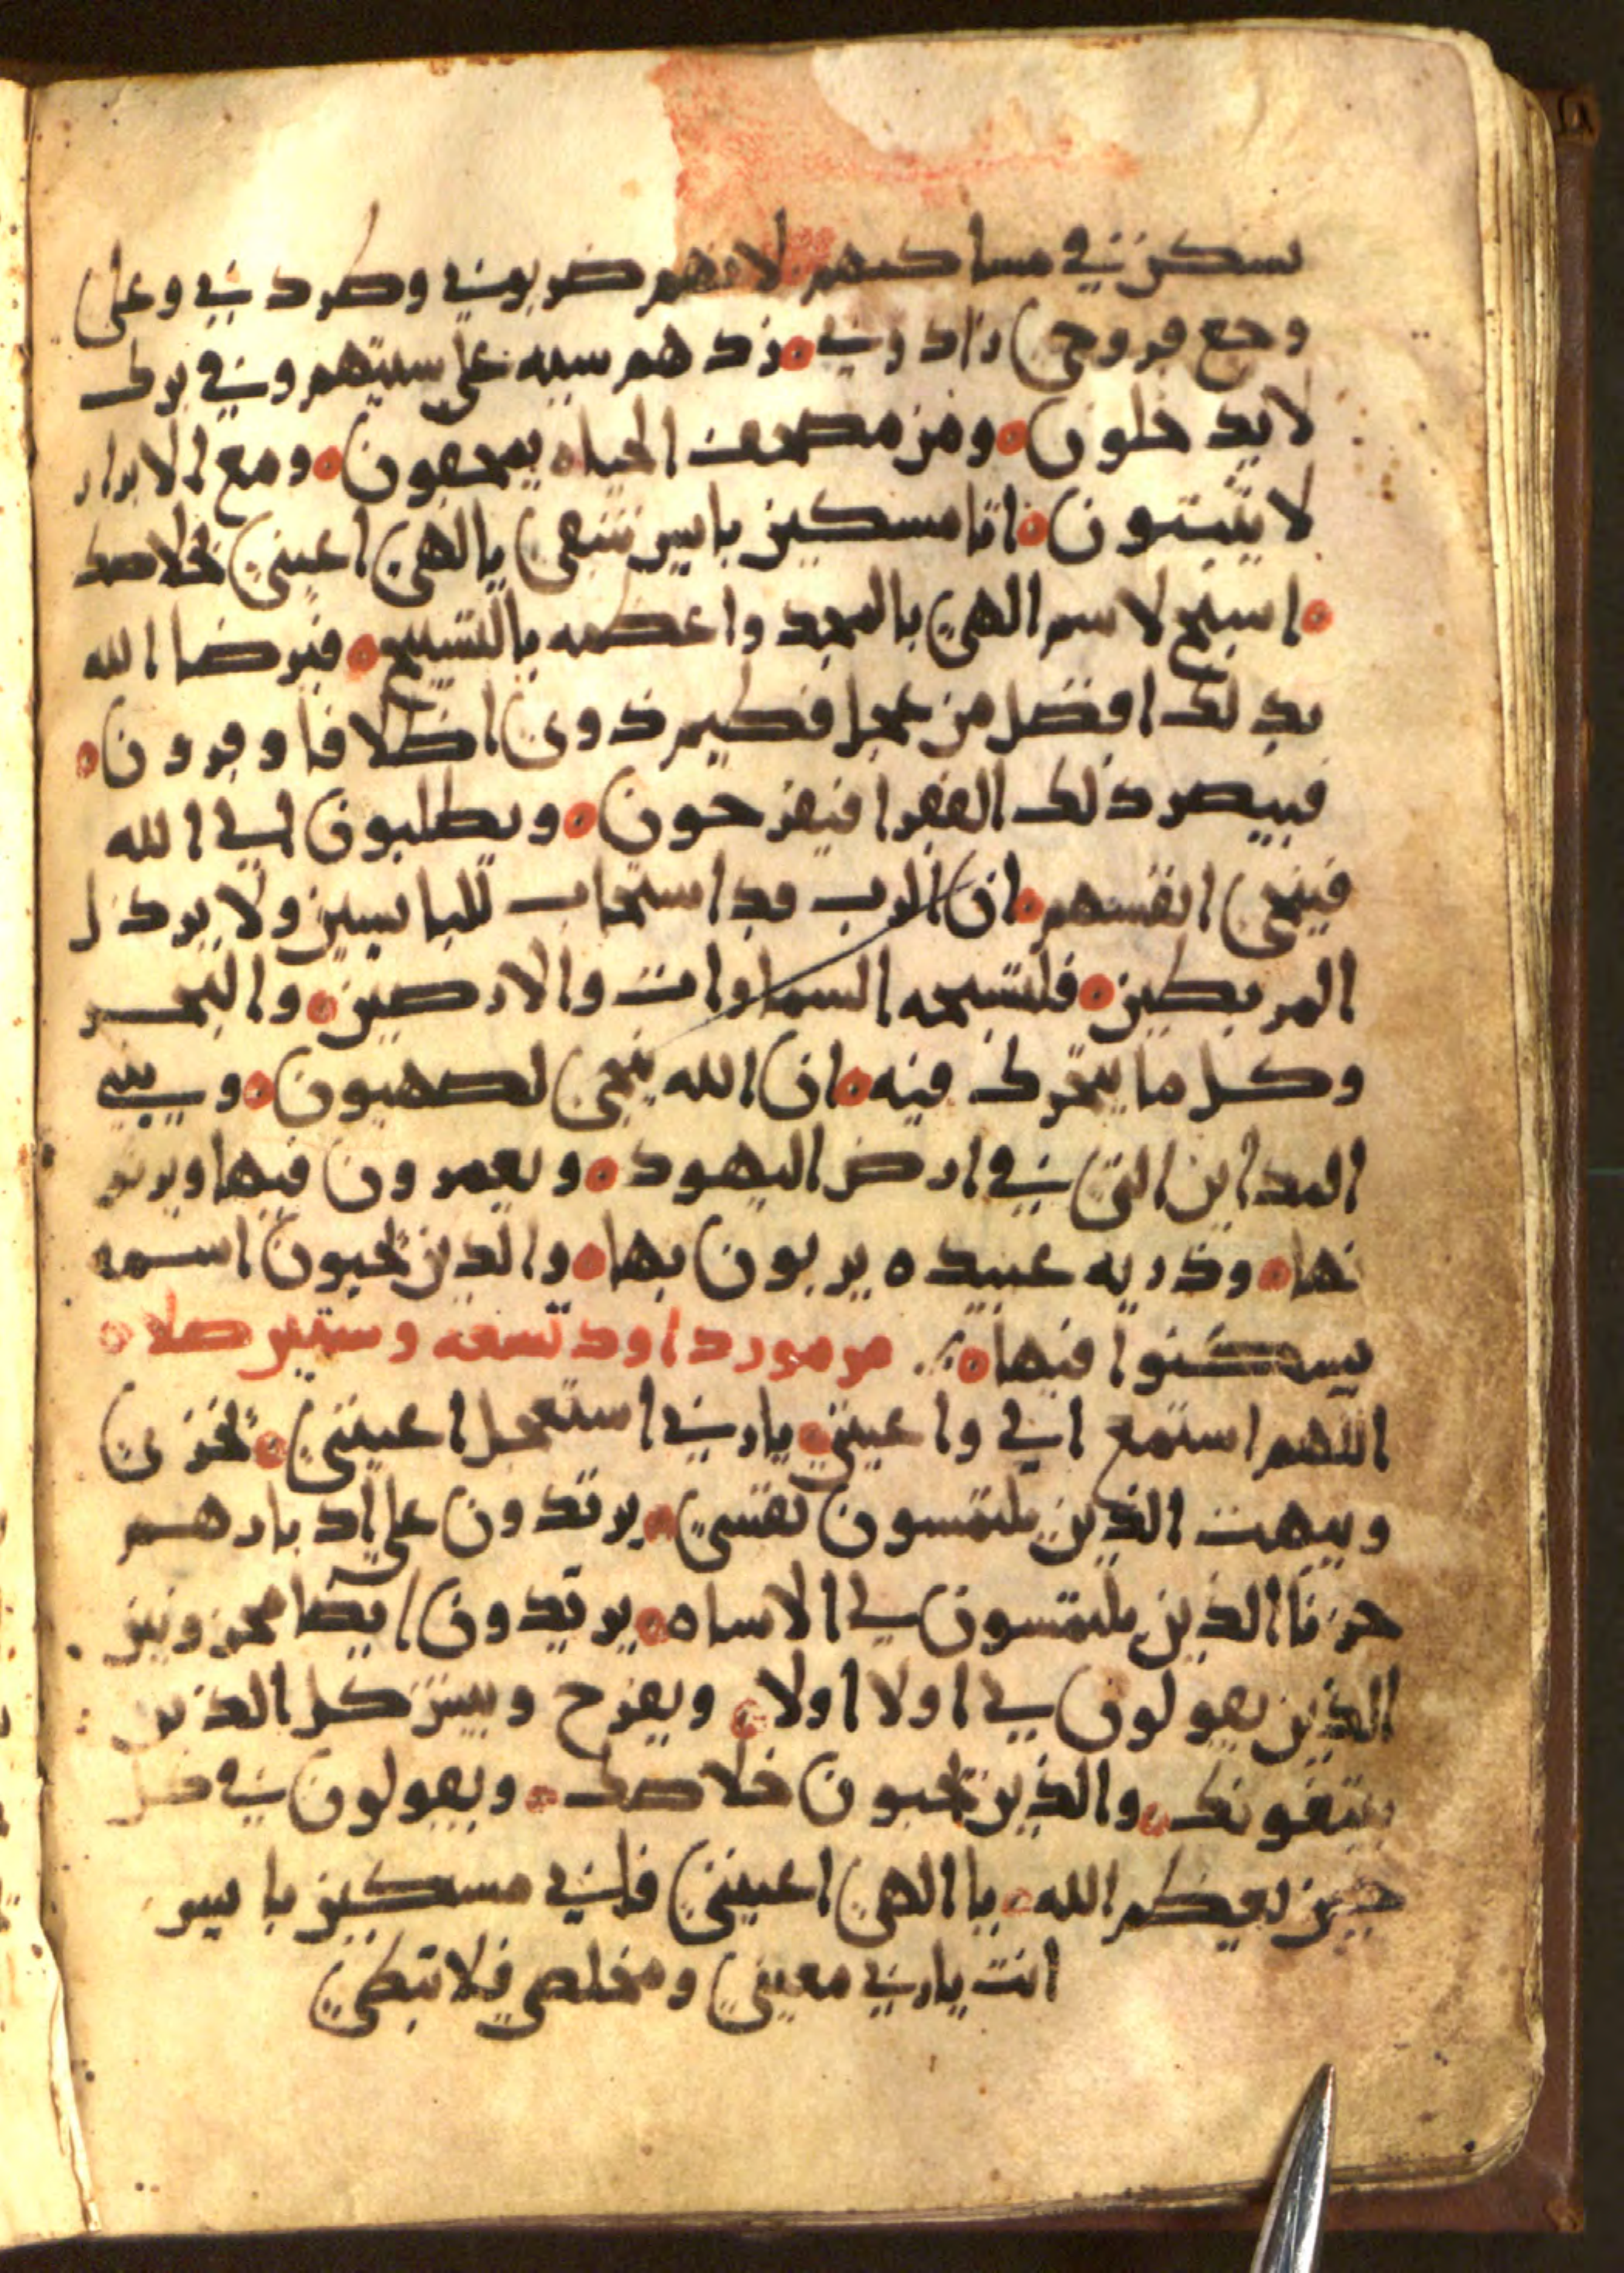 يسكن في مساكنهم لانهم ضربوني وطردني وعلى
وجع قروحي زادوني ه زدهم سيه على سيتهم وفي برك
لا يدخلون ه ومن مصحف الحياه يمحقون ه ومع الابرار
لا يثبتون ه انا مسكين بايس شقي يا الهي اعيني بخلاصك
ه اسبح لاسم الهي بالمجد واعظمه بالتسبيح ه فيرضا الله
بذلك افضل من عجل فطيم ذوي اظلافا وقرون ه
فيبصر ذلك الفقرا فيفرحون ه ويطلبون الي الله
فينجي انفسهم ه ان الرب قد استجاب للبايسين ولا يرذل
المربطين ه فلتسبحه السماوات والارضين ه والبحر
وكل ما يتحرك فيه ه ان الله ينجي لصهيون ه ويبني
المداين التي في ارض اليهود ه ويعمرون فيها ويرثو
نها ه وذريه عبيده يربون بها ه والذين يحبون اسمه
يسكنوا فيها ه مزمور داود تسعه وستين صلاه
اللهم استمع الي واعيني ه يا ربي استعجل اعينني ه يخزن
ويبهت الذين يلتمسون نفسي ه يرتدون على ادبارهم
حزنا الذين يلتمسون لي الاساه ه يرتدون ايضا محزونين
الذين يقولون لي اولا اولا ه ويفرح ويسر كل الذين
يبتغونك ه والذين يحبون خلاصك ه ويقولون في كل
حين يعظم الله ه يا الهي اعينني فاني مسكين بايس
انت يا ربي معيني ومخلصي فلا تبطي